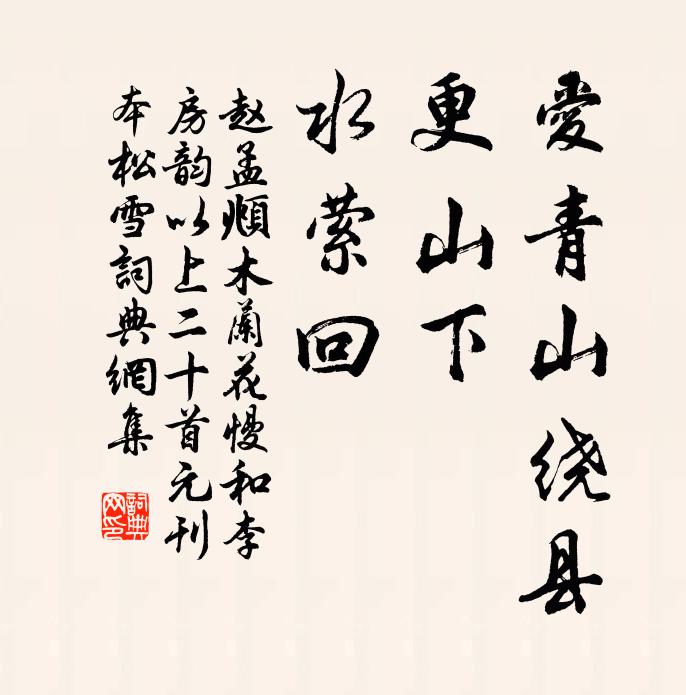 愛青山绕县
更山下
水萦回
赵孟頫木蘭花慢和李
房韵以上二十首元刊
本松雪詞典網集
詞典
网印